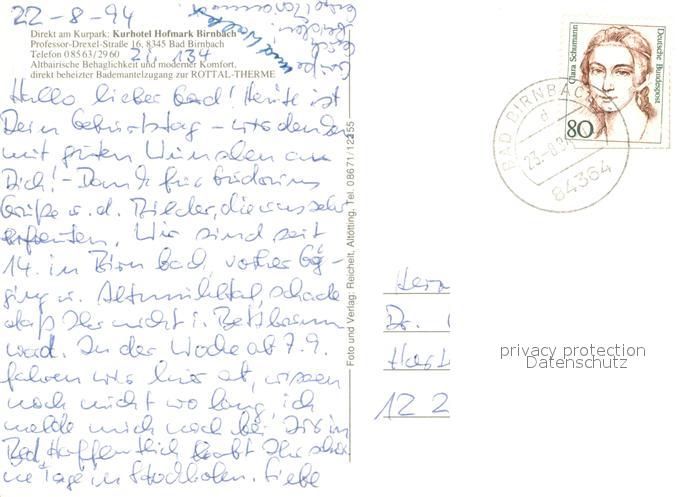 22-8-94
Direkt am Kurpark: Kurhotel Hofmark Birnbach
Professor-Drexel-Straße 16, 8345 Bad Birnbach
Telefon 08563/2960
Zi 134
Altbairische Behaglichkeit und moderner Komfort,
direkt beheizter Bademantelzugang zur ROTTAL-THERME
Hallo lieber Gerd! Heute ist
Dein Geburtstag - wir denken
mit guten Wünschen an
Dich! - Dank für
Grüße u. d. Bilder, die uns sehr
erfreuten. Wir sind seit
14. in Birnbach, vorher
ging u. Altmühltal, schade
daß Ihr nicht i.
ward. In der Woche ab 7.9.
fahren wir hier ab, wissen
noch nicht wo lang, ich
melde mich noch bei Dir in
Bad. Hoffentlich habt Ihr schö
ne Tage in Stockholm. Liebe
Grüße
Foto und Verlag: Reichelt, Altötting, Tel. 08671/12255
Clara Schumann
Deutsche Bundespost
80
BAD BIRNBACH
d
84364
Herr
Dr.
12 2
privacy protection
Datenschutz